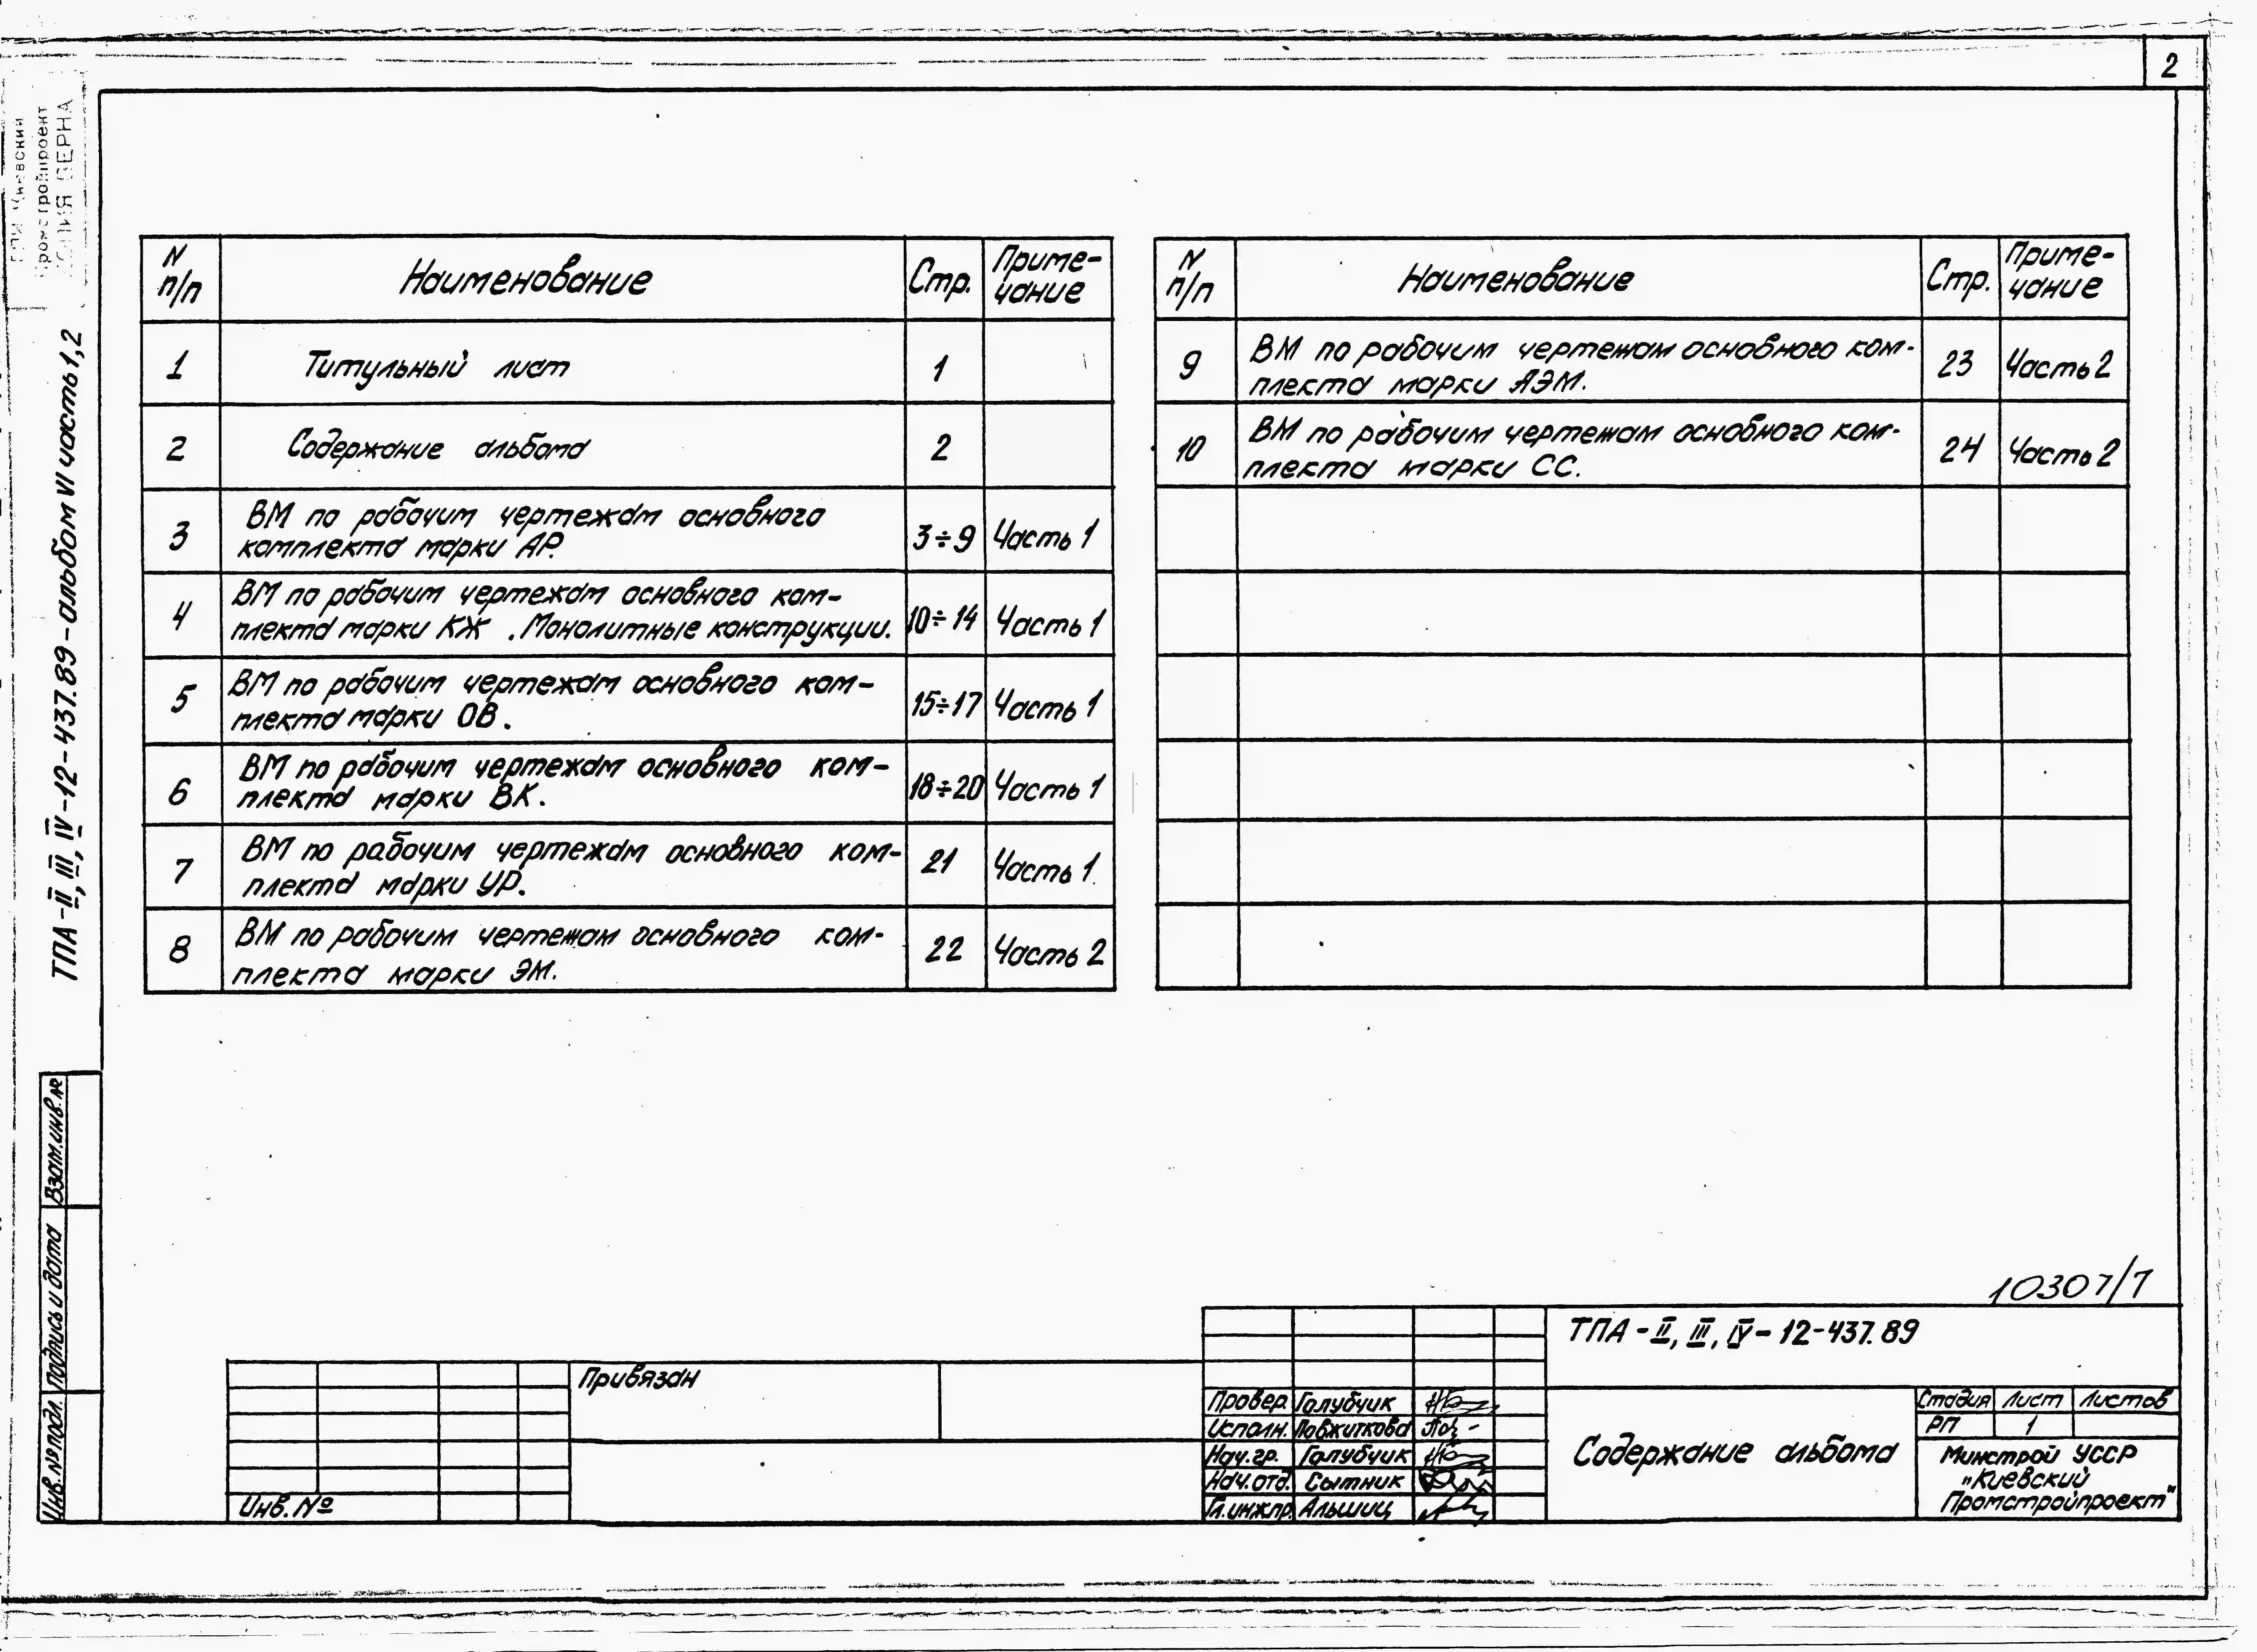 2
ТПА-II, III, IV-12-437.89-альбом VI часть 1,2
КОПИЯ ВЕРНА
N п/п
Наименование
Стр.
Приме-
чание
1
Титульный лист
1
2
Содержание альбома
2
3
ВМ по рабочим чертежам основного
комплекта марки АР.
3÷9
Часть 1
4
ВМ по рабочим чертежам основного ком-
плекта марки КЖ . Монолитные конструкции.
10÷14
Часть 1
5
ВМ по рабочим чертежам основного ком-
плекта марки ОВ.
15÷17
Часть 1
6
ВМ по рабочим чертежам основного ком-
плекта марки ВК.
18÷20
Часть 1
7
ВМ по рабочим чертежам основного ком-
плекта марки УР.
21
Часть 1
8
ВМ по рабочим чертежам основного ком-
плекта марки ЭМ.
22
Часть 2
N п/п
Наименование
Стр.
Приме-
чание
9
ВМ по рабочим чертежам основного ком-
плекта марки АЭМ.
23
Часть 2
10
ВМ по рабочим чертежам основного ком-
плекта марки СС.
24
Часть 2
Взам.инв.№
Подпись и дата
Инв.№ подл.
10307/7
ТПА-II, III, IV-12-437.89
Привязан
Инв.№
Провер. Голубчик
Исполн. Повжиткова
Нач.гр. Голубчик
Нач.отд. Сытник
Гл.инж.пр. Альшиц
Содержание альбома
Стадия Лист Листов
РП 1
Минстрой УССР
„Киевский
Промстройпроект"